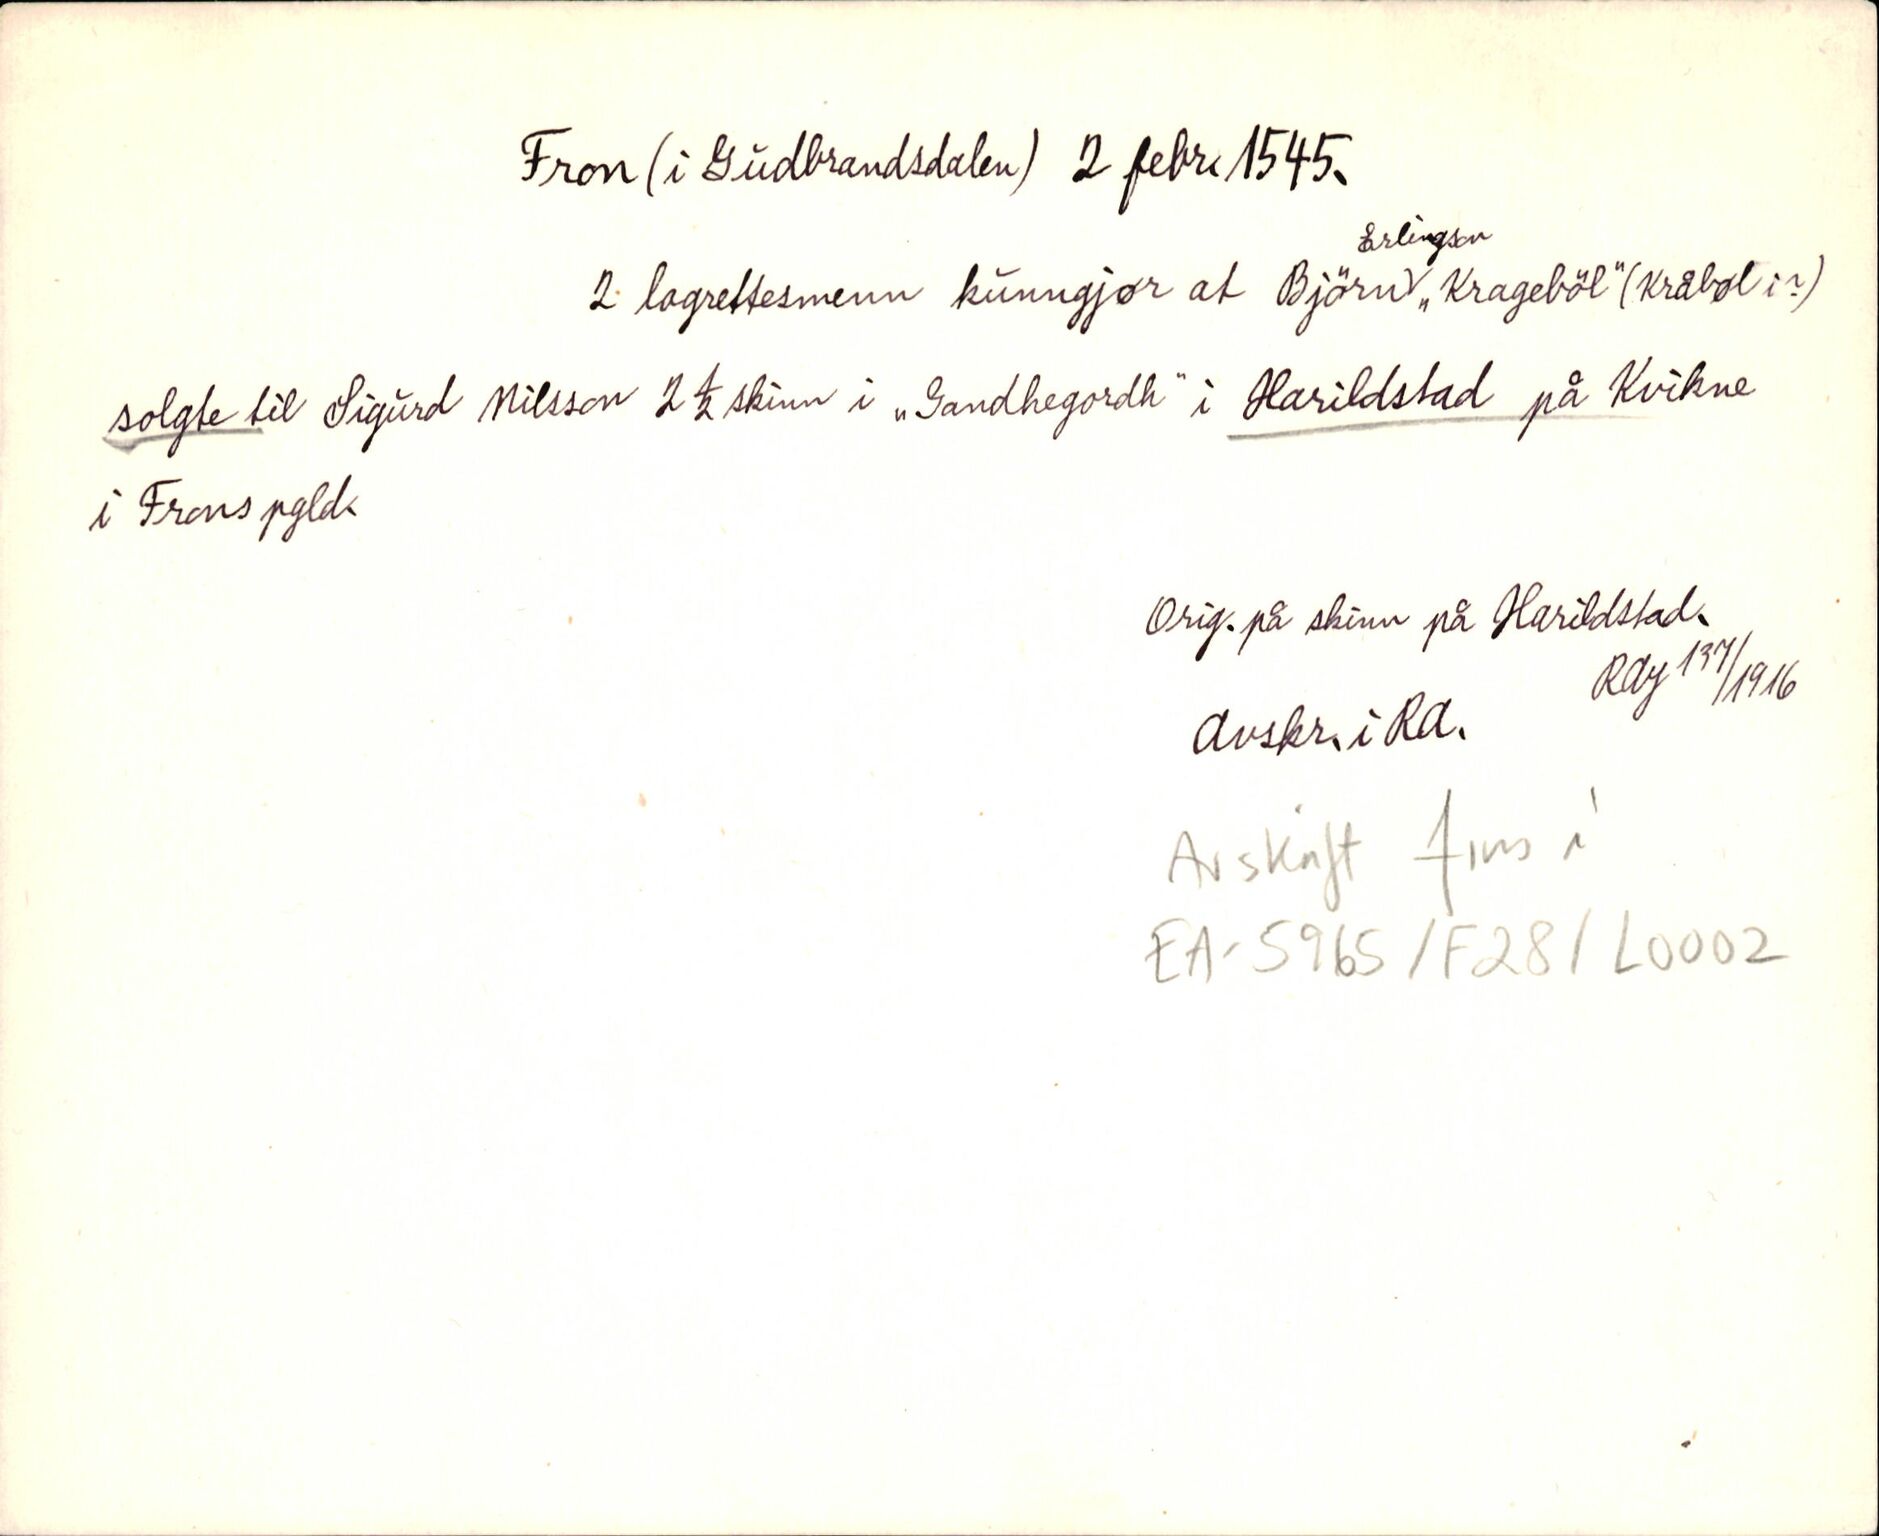 Fron (i Gudbrandsdalen) 2 febr. 1545.
Erlingson
2 lagrettesmenn kunngjør at Björn „Krageböl" (Kråbøl i?)
solgte til Sigurd Nilsson 2 1/2 skinn i „Gandhegordh" i Harildstad på Kvikne
i Frons pgld.
Orig. på skinn på Harildstad.
137/1916
Avskr. i RA.
Avskrift fins i
EA-5965/F28/L0002